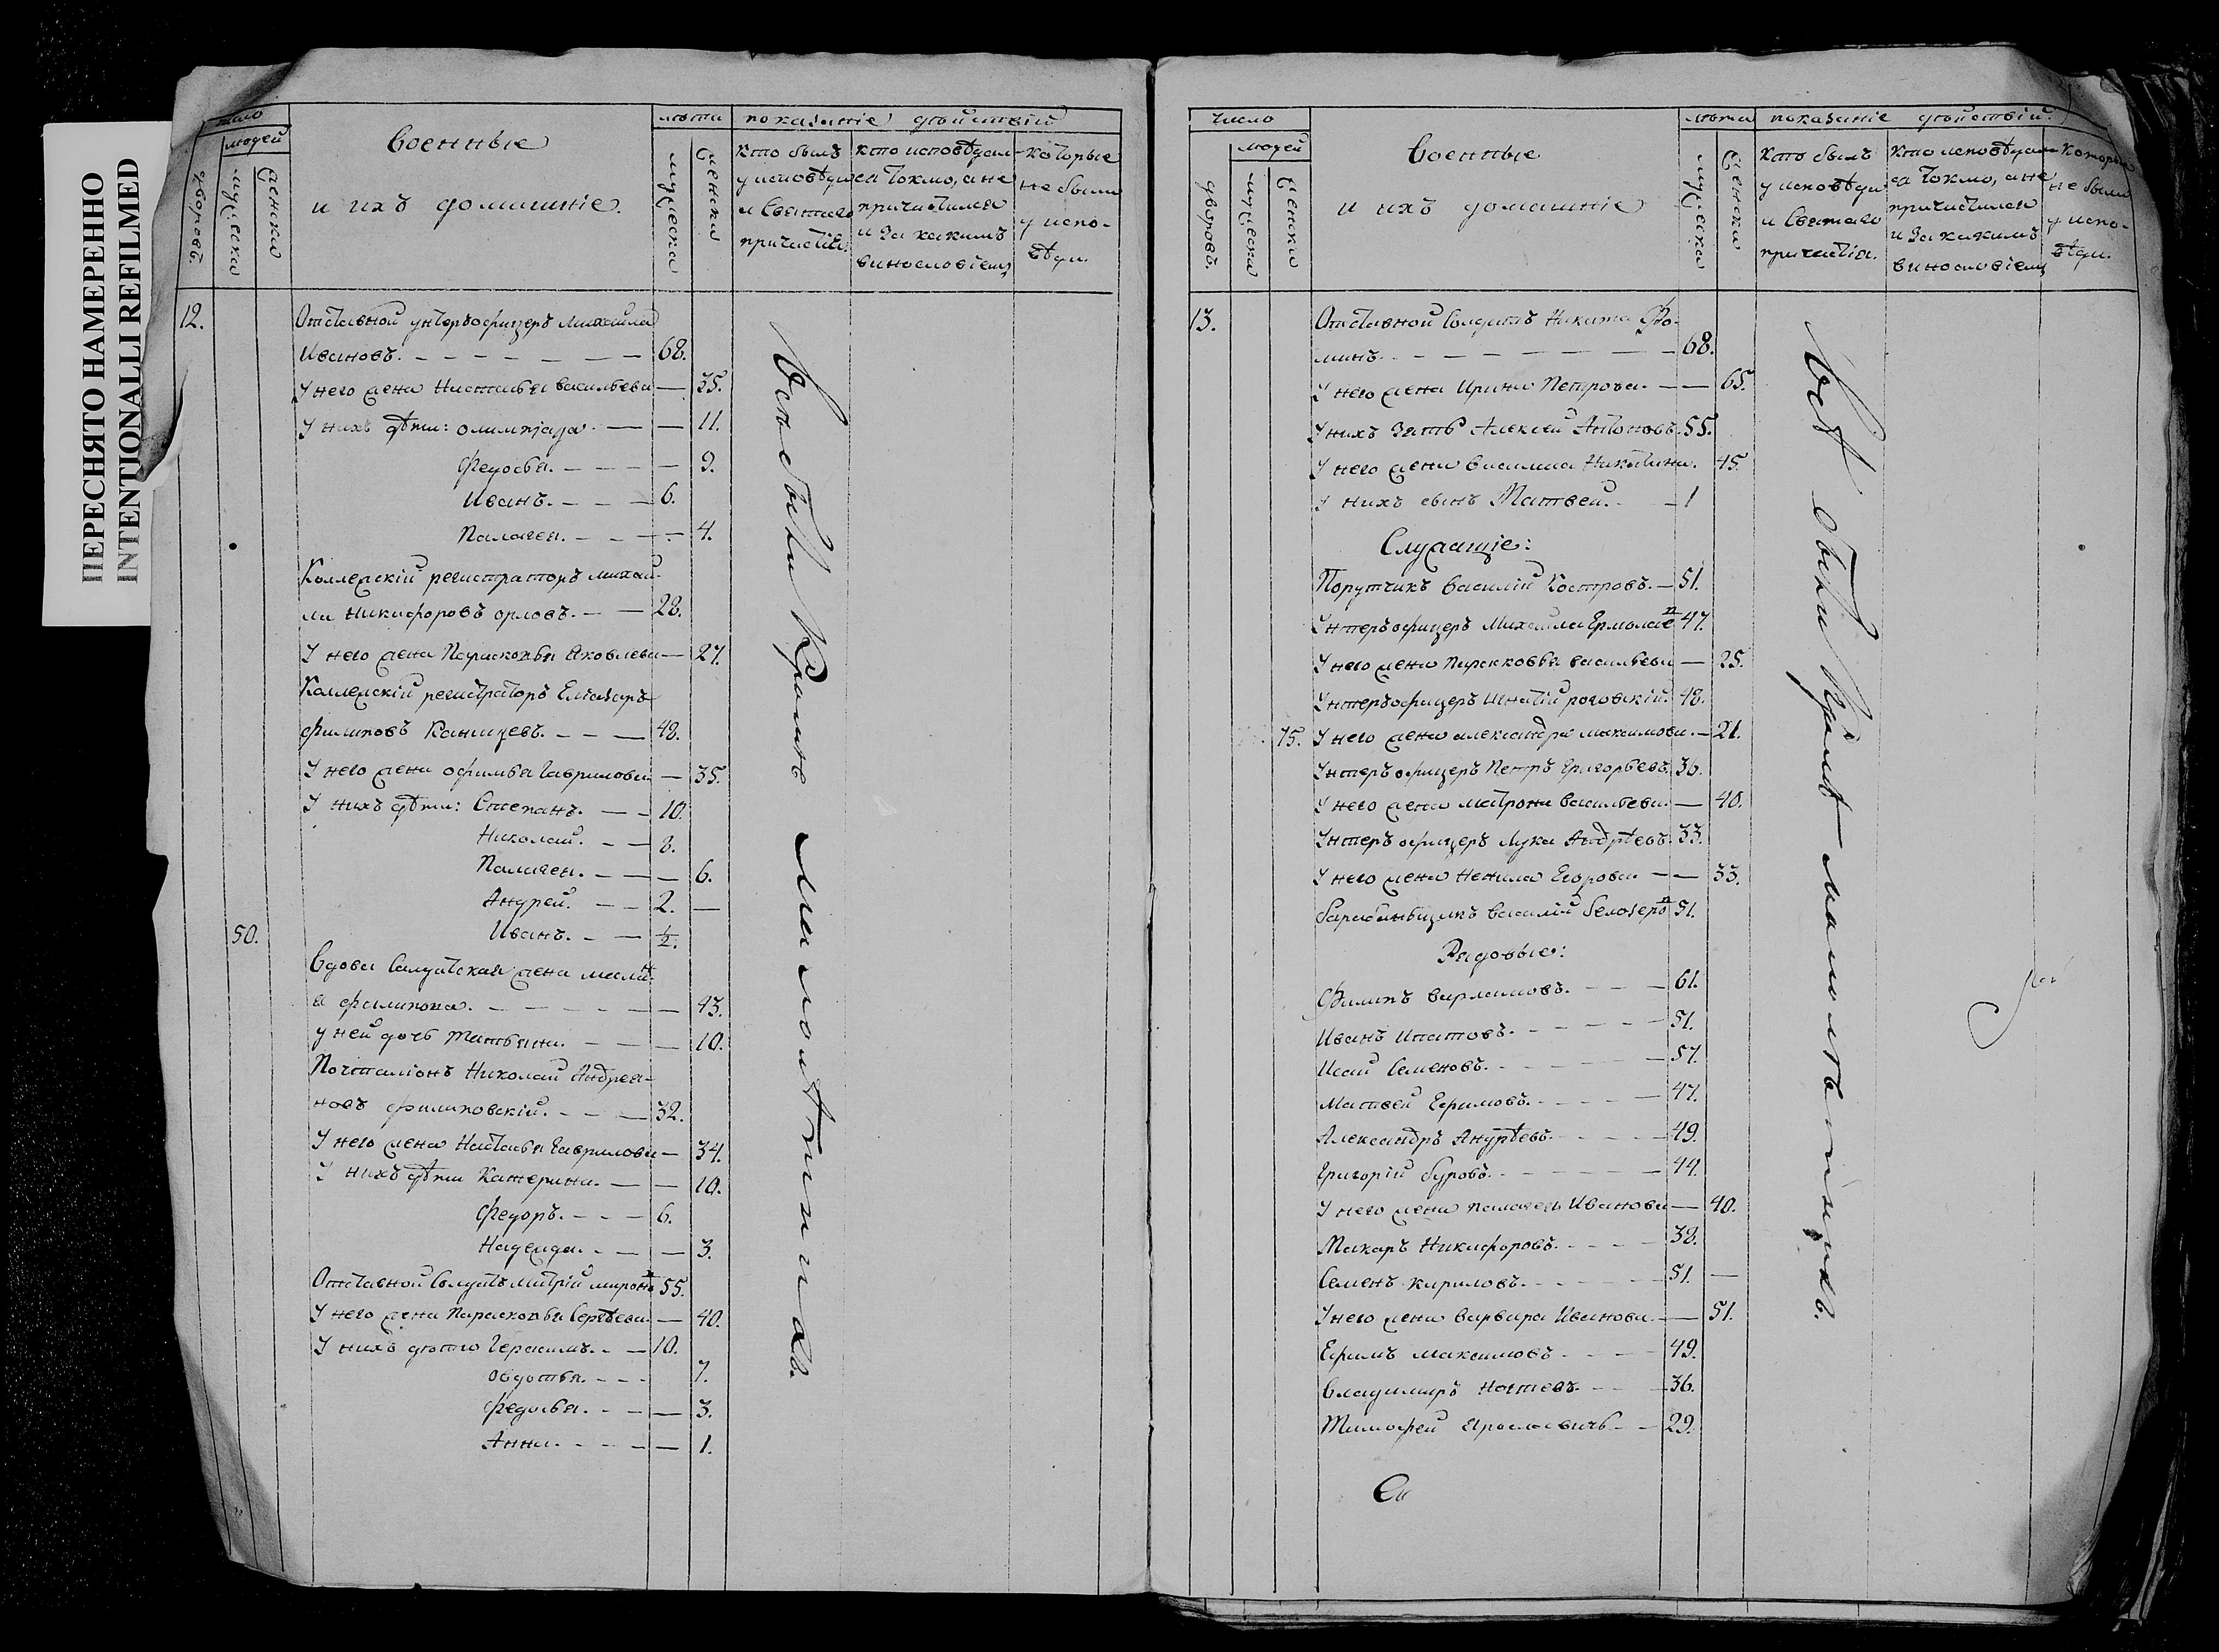 ПЕРЕСНЯТО НАМЕРЕННО
INTENTIONALLI REFILMED
число
людей
дворовъ.
мужеска
женска
Военные
и ихъ домашніе.
лѣта
мужеска
женска
показаніе дѣйствій
кто былъ
у исповѣди
и Святаго
причастія.
кто исповѣдал-
ся токмо, а не
причастился
и за какимъ
винословіемъ
которые
не были
у испо-
вѣди.
12.
Отставной унтеръофицеръ Михаила
Ивановъ. 68.
У него жена Наталья Васильева 35.
У нихъ дѣти: Олимпіада 11.
Федосья. 9.
Иванъ. 6.
Палагея. 4.
Коллежскій регистраторъ Михай-
ла Никифоровъ Орловъ. 28.
У него жена Парасковья Яковлева 27.
Коллежскій регистраторъ Елиазаръ
Филиповъ Канищевъ. 48.
У него жена Офимья Гаврилова 35.
У нихъ дѣти: Степанъ. 10.
Николай. 8.
Палагея. 6.
Андрей. 2.
50. Иванъ. ½.
Вдова Салдатская жена
Филипова. 43.
у ней дочь Татьяна. 10.
Почталіонъ Николай Андреа-
новъ Филиповскій. 32.
У него жена Наталья Гаврилова 34.
У нихъ дѣти Катерина. 10.
Федоръ. 6.
Надежда. 3.
Отставной Салдатъ Митрій Миронов 55.
У него жена Парасковья Сергѣева 40.
У нихъ дѣти Герасимъ. 10.
Овдотья. 7.
Федосья. 3.
Анна. 1.
Всѣ были Кроме малолѣтнихъ.
число
людей
дворовъ.
мужеска
женска
Военные
и ихъ домашніе
лѣта
мужеска
женска
показаніе дѣйствій.
кто былъ
у исповѣди
и Святаго
причастія.
кто исповѣдал-
ся токмо, а не
причастился
и за какимъ
винословіемъ
которые
не были
у испо-
вѣди.
13.
Отставной Солдатъ Никита Фо-
минъ. 68.
У него жена Ирина Петрова. 65.
У нихъ зять Алексей Антоновъ. 55.
У него жена Василиса Никитина. 45.
У нихъ сынъ Матвей. 1
Служащіе:
Порутчикъ Василій Костровъ. 51.
Унтеръофицеръ Михаила Ермолае в 47.
У него жена Парасковья Васильева 25.
Унтеръофицеръ Игнатій Роговскій. 48.
75. У него жена Александра Максимова. 21.
Унтеръ офицеръ Петръ Григорьевъ. 36.
У него жена Матрона Васильева. 40.
Унтеръ офицеръ Лука Андрѣевъ. 33.
У него жена Ненила Егорова 33.
Барабанщикъ Василій Белозеро в 51.
Рядовые:
Филипъ Варламовъ. 61.
Иванъ Ипатовъ. 51.
Исай Семеновъ. 57.
Матвей Ефимовъ. 47.
Александръ Андрѣевъ. 49.
Григорій Буровъ. 44.
У него жена Палагея Иванова 40.
Макаръ Никифоровъ. 38.
Семенъ Кириловъ. 51.
У него жена Варвара Иванова. 51.
Ефимъ Максимовъ. 49.
Владимиръ 36.
Тимофей Ярославичъ 29.
Всѣ были Кромѣ малолѣтнихъ.